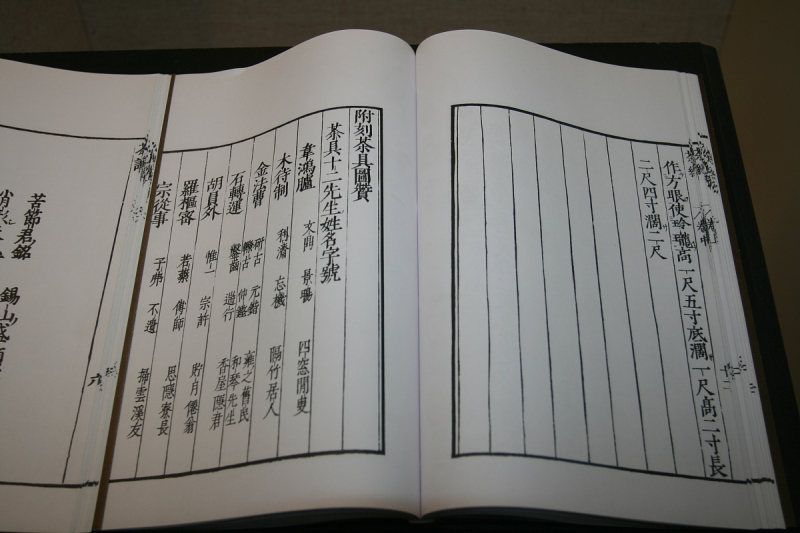 作方眼使玲瓏高一尺五寸底濶一尺高二寸長
二尺四寸濶二尺
附刻茶具圖贊
茶具十二先生姓名字號
韋鴻臚 文鼎 景暘 四窓閒叟
木待制 利濟 忘機 隔竹居人
金法曹 研古 元鍇 雍之舊民
轢古 仲鏗 和琴先生
石轉運 鑿齒 遄行 香屋隱君
胡員外 惟一 宗許 貯月僊翁
羅樞密 若藥 傳師 思隱寮長
宗從事 子弗 不遺 掃雲溪友
六
苦節君銘
錫山盛